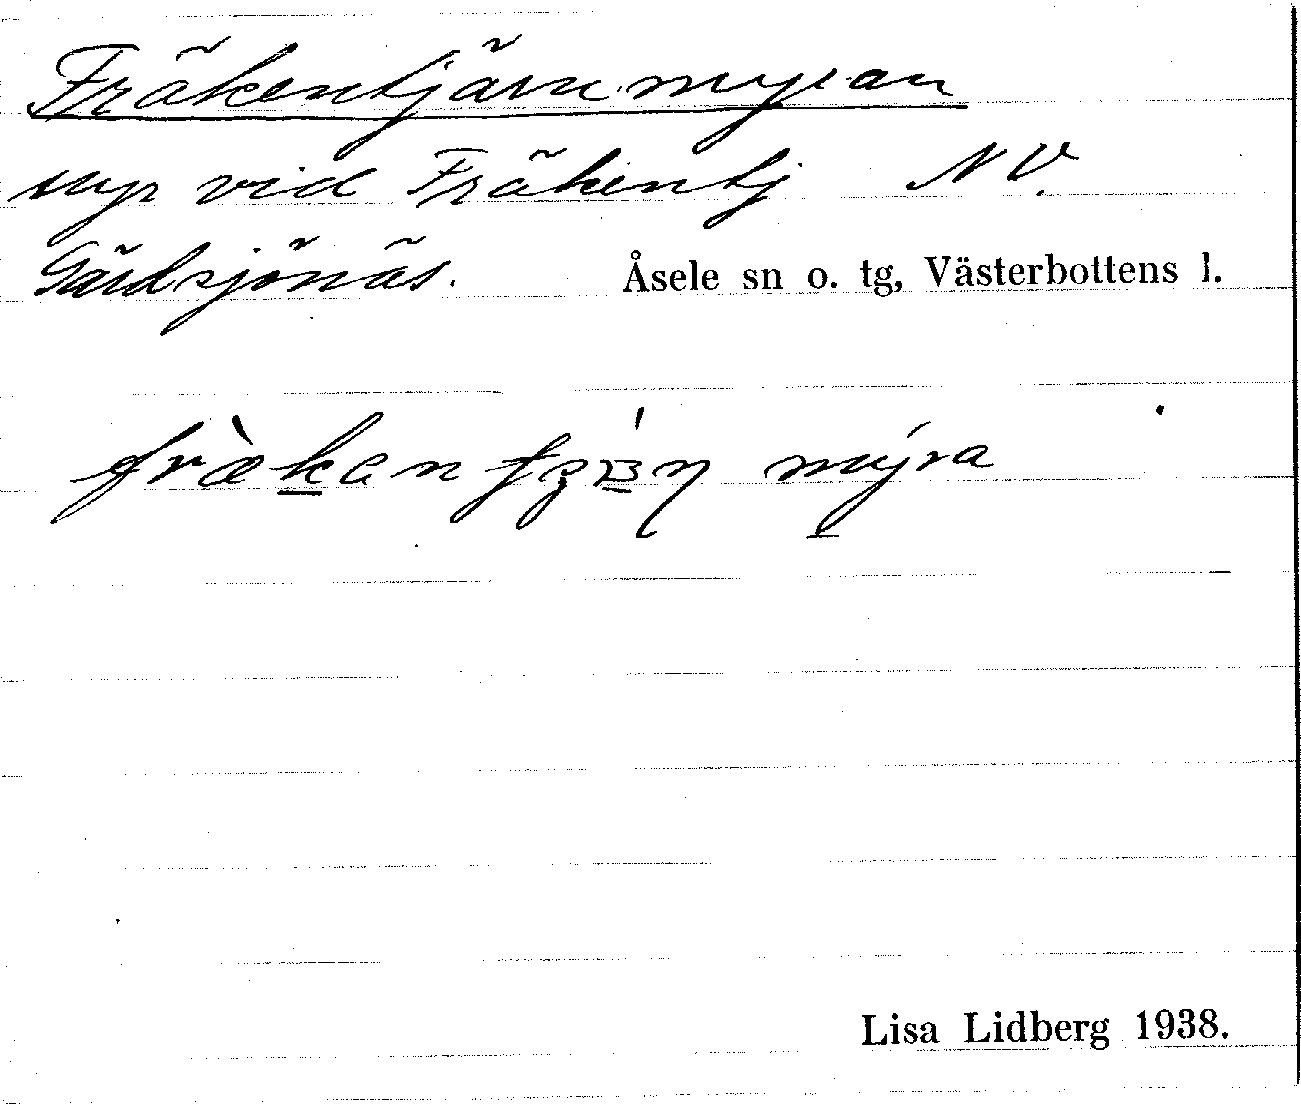 Fräkentjärnmyran
myr vid Fräkentj NV.
Gärdsjönäs. Åsele sn o. tg, Västerbottens l.
mýra
Lisa Lidberg 1938.